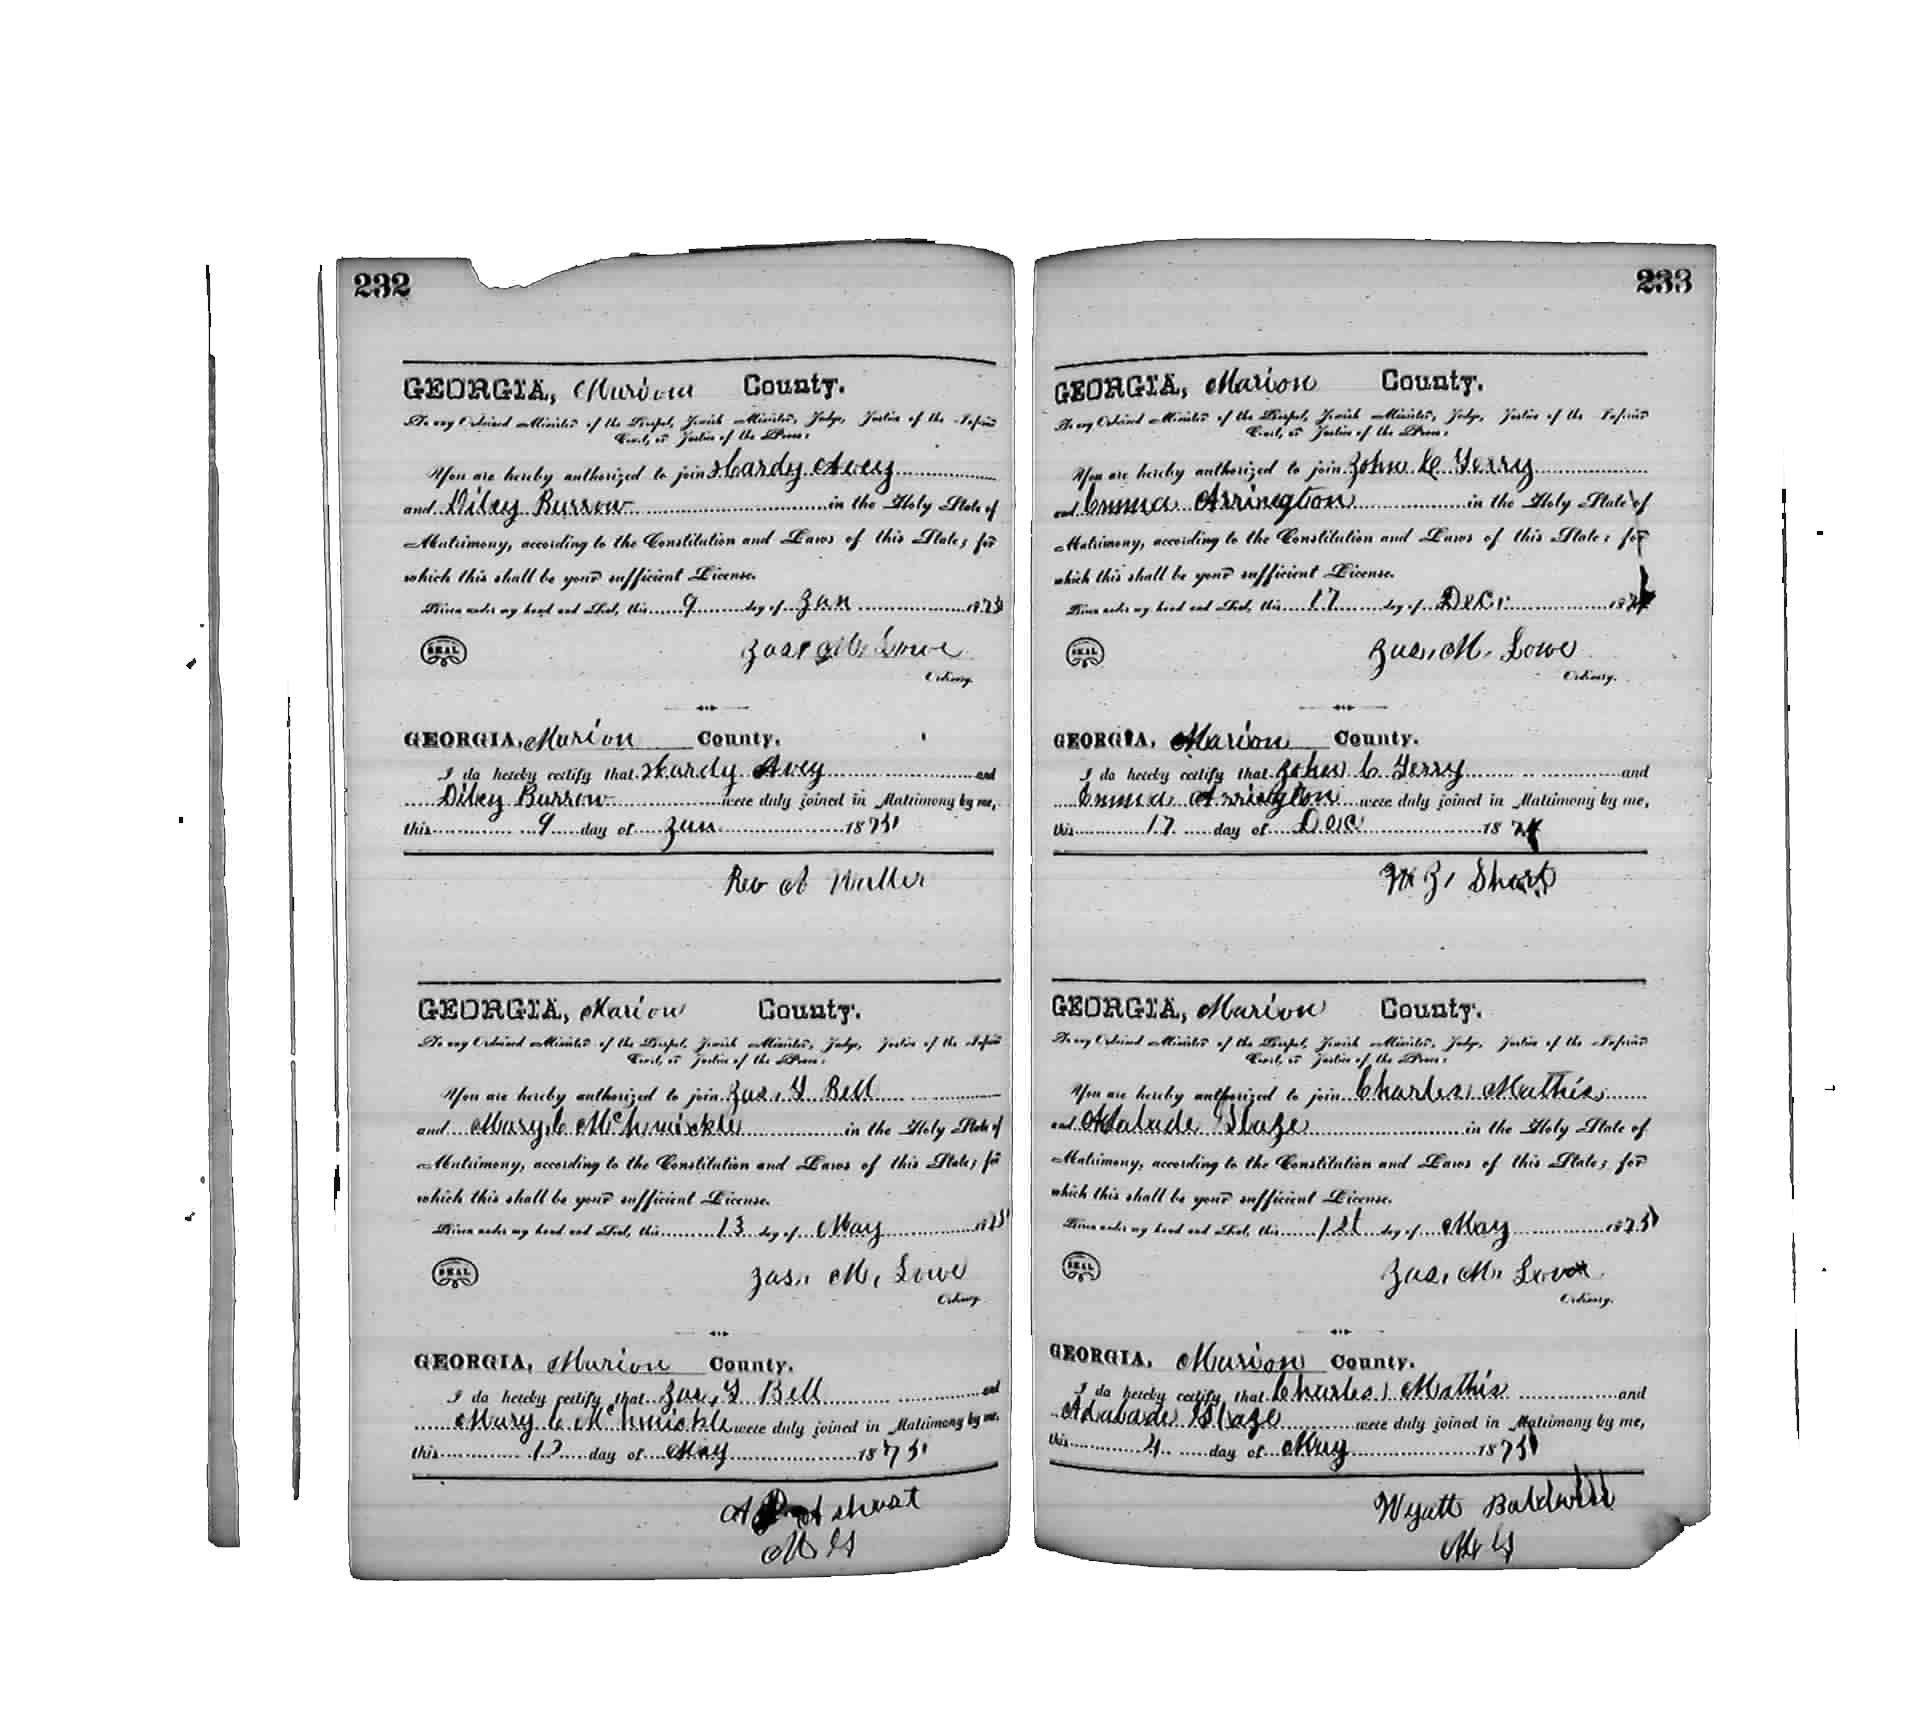 232
GEORGIA, Marion County.
To any Ordained Minister of the Gospel, Jewish Minister, Judge, Justice of the Inferior
Court, or Justice of the Peace:
You are hereby authorized to join Hardy Avey
and Diley Burrow in the Holy State of
Matrimony, according to the Constitution and Laws of this State; for
which this shall be your sufficient License.
Given under my hand and Seal, this 9 day of Jan 1875
SEAL Jas. M. Lowe
Ordinary.
GEORGIA, Marion County.
I do hereby certify that Hardy Avey and
Diley Burrow were duly joined in Matrimony by me,
this 9 day of Jan 1875
Rev A
GEORGIA, Marion County.
To any Ordained Minister of the Gospel, Jewish Minister, Judge, Justice of the Inferior
Court, or Justice of the Peace:
You are hereby authorized to join Jas. Y Bell
and Mary C in the Holy State of
Matrimony, according to the Constitution and Laws of this State; for
which this shall be your sufficient License.
Given under my hand and Seal, this 13 day of May 1875
SEAL Jas. M. Lowe
Ordinary.
GEORGIA, Marion County.
I do hereby certify that Jas. Y Bell and
Mary C were duly joined in Matrimony by me,
this 13 day of May 1875
M G
233
GEORGIA, Marion County.
To any Ordained Minister of the Gospel, Jewish Minister, Judge, Justice of the Inferior
Court, or Justice of the Peace:
You are hereby authorized to join John C Terry
and Emma Arrington in the Holy State of
Matrimony, according to the Constitution and Laws of this State; for
which this shall be your sufficient License.
Given under my hand and Seal, this 17 day of Dec. 1874
SEAL Jas. M. Lowe
Ordinary.
GEORGIA, Marion County.
I do hereby certify that John C Terry and
Emma Arrington were duly joined in Matrimony by me,
this 17 day of Dec 1874
Short
GEORGIA, Marion County.
To any Ordained Minister of the Gospel, Jewish Minister, Judge, Justice of the Inferior
Court, or Justice of the Peace:
You are hereby authorized to join Charles Mathis
and Adalade Blaze in the Holy State of
Matrimony, according to the Constitution and Laws of this State; for
which this shall be your sufficient License.
Given under my hand and Seal, this 1st day of May 1875
SEAL Jas. M. Lowe
Ordinary.
GEORGIA, Marion County.
I do hereby certify that Charles Mathis and
Adalade Blaze were duly joined in Matrimony by me,
this 4 day of May 1875
Wyatt Baldwin
M G